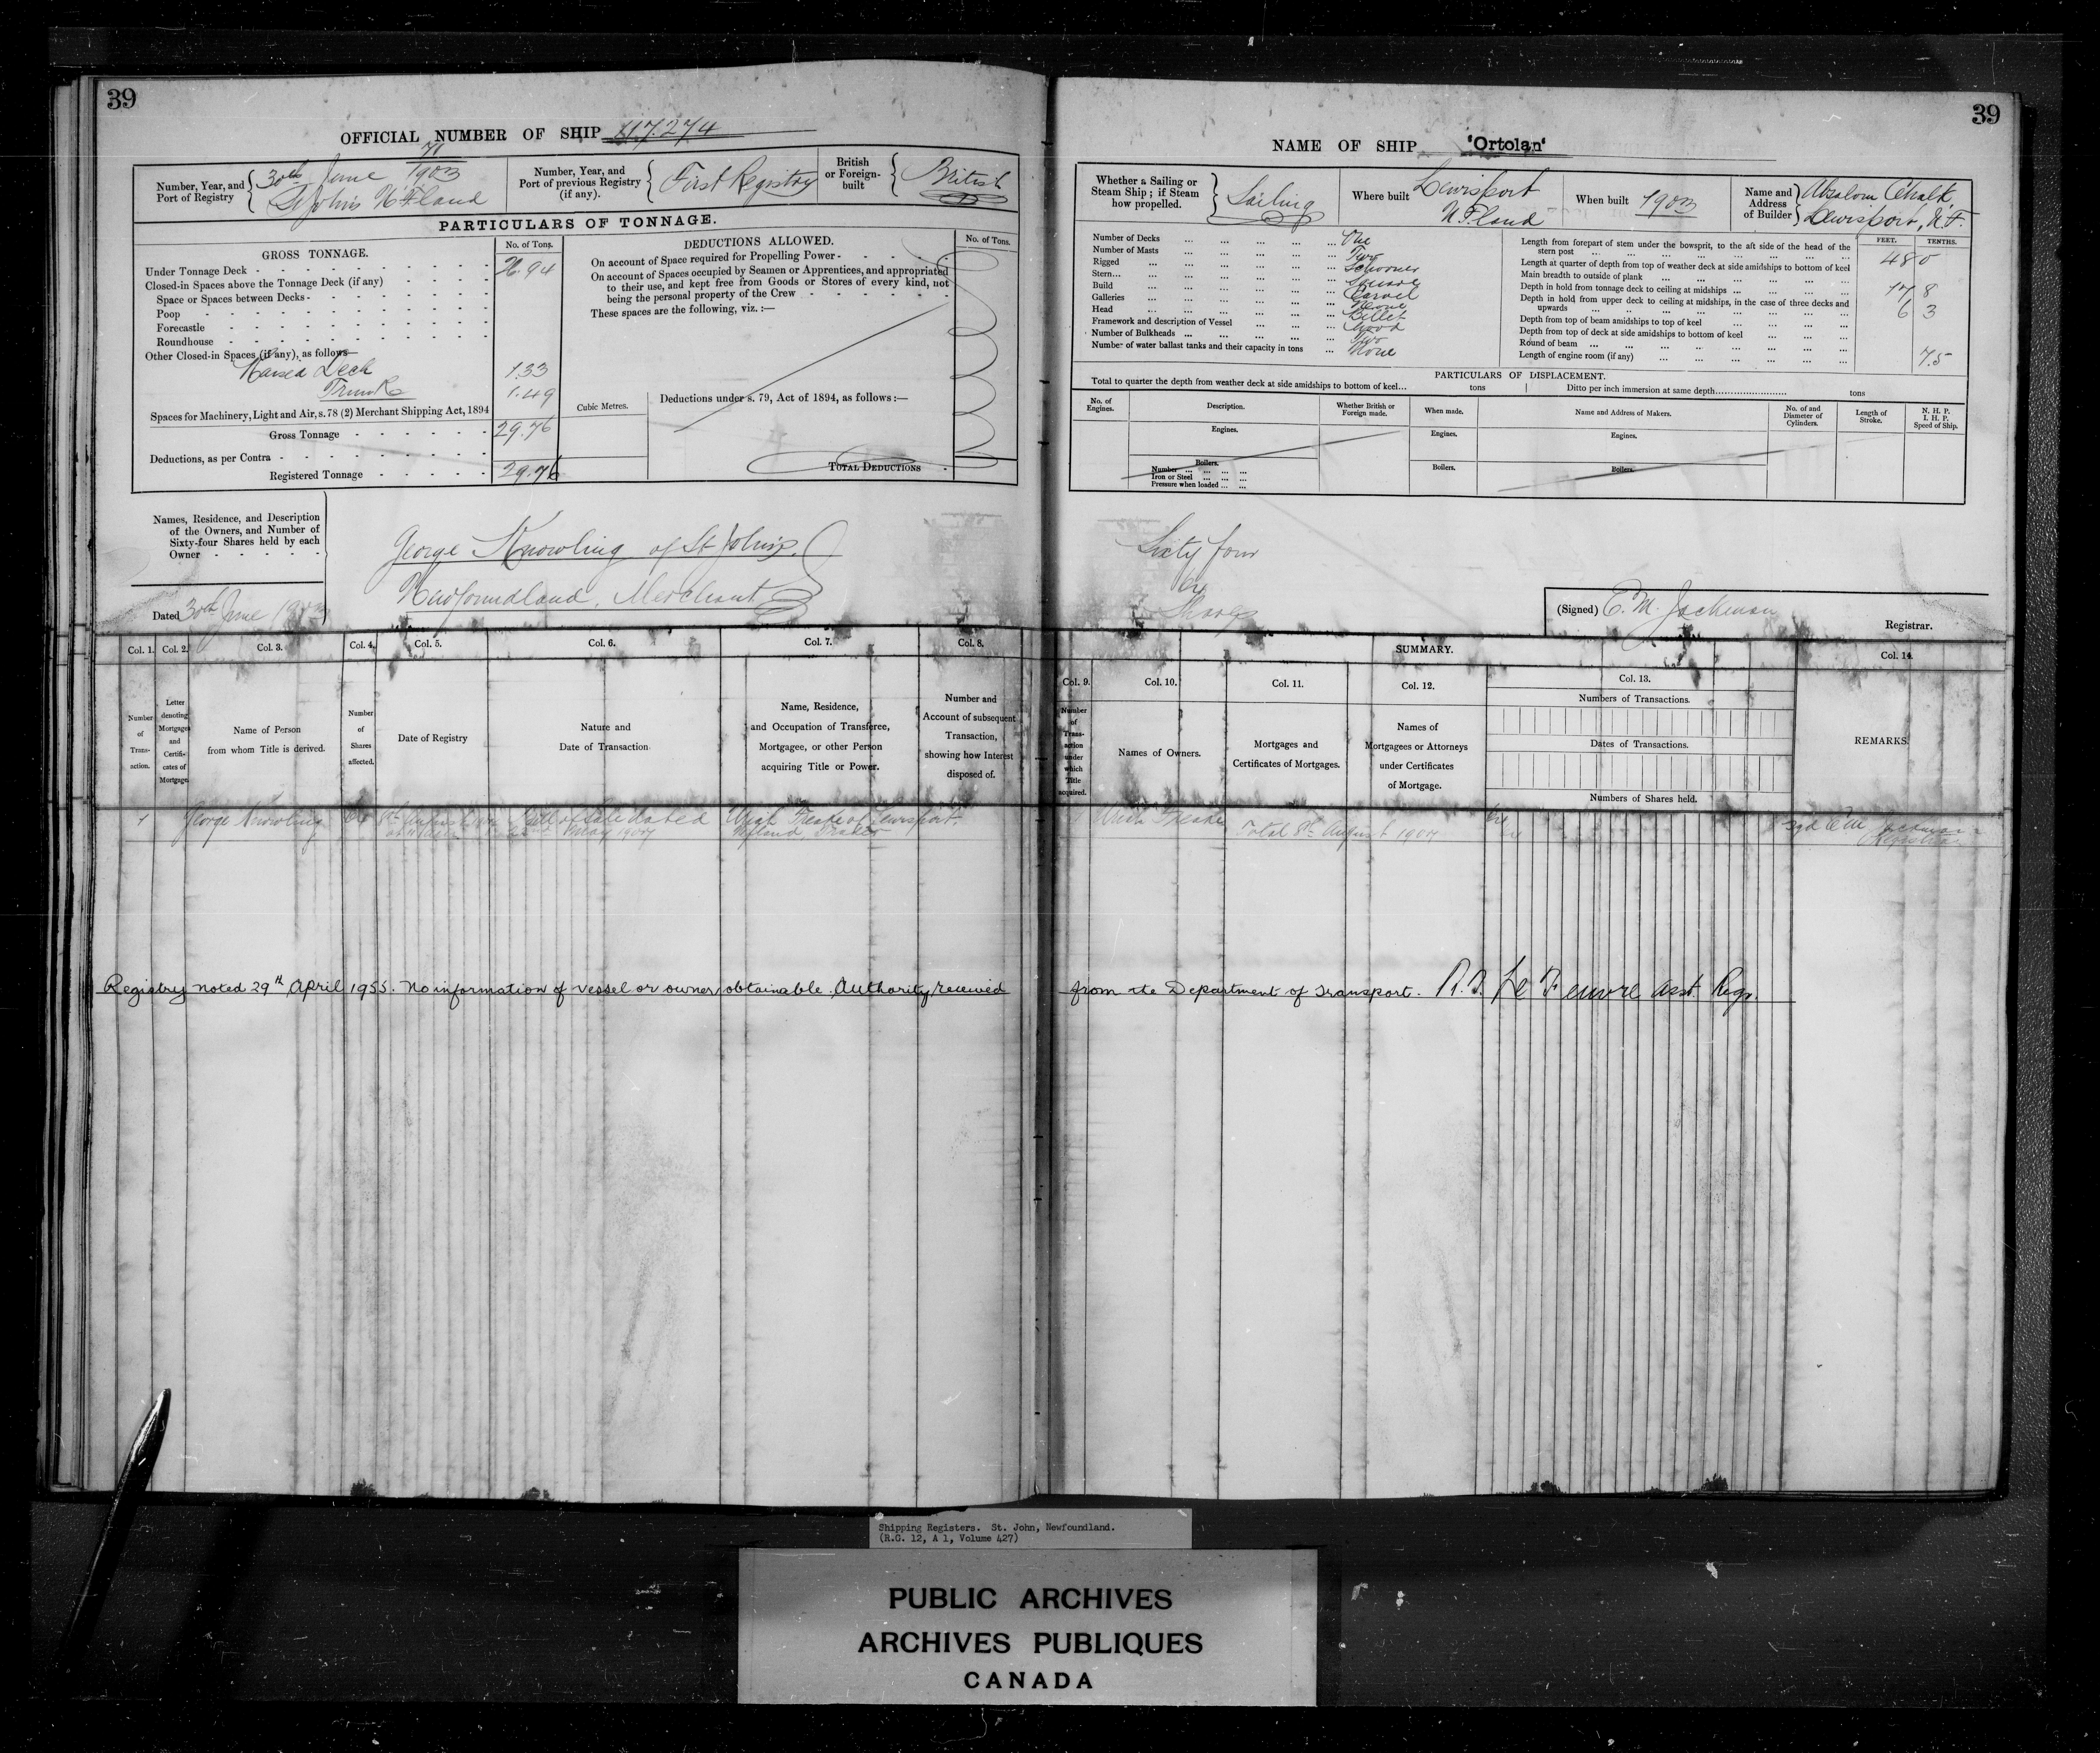 39
OFFICIAL NUMBER OF SHIP 117.274
Number, Year, and Port of Registry
71
30th June 1903
St John's N'F'land
Number, Year, and Port of previous Registry (if any).
First Registry
British or Foreign-built
British
PARTICULARS OF TONNAGE.
GROSS TONNAGE.
No. of Tons.
Under Tonnage Deck 26.94
Closed-in Spaces above the Tonnage Deck (if any)
Space or Spaces between Decks
Poop
Forecastle
Roundhouse
Other Closed-in Spaces (if any), as follows—
Raised Deck 1.33
Trunk 1.49
Spaces for Machinery, Light and Air, s. 78 (2) Merchant Shipping Act, 1894
Gross Tonnage 29.76
Deductions, as per Contra
Registered Tonnage 29.76
DEDUCTIONS ALLOWED.
No. of Tons.
On account of Space required for Propelling Power
On account of Spaces occupied by Seamen or Apprentices, and appropriated
to their use, and kept free from Goods or Stores of every kind, not
being the personal property of the Crew
These spaces are the following, viz. :—
Cubic Metres.
Deductions under s. 79, Act of 1894, as follows :—
TOTAL DEDUCTIONS
Names, Residence, and Description
of the Owners, and Number of
Sixty-four Shares held by each
Owner
George Knowling of St John's
Newfoundland, Merchant
Dated 30th June 1903
Col. 1.
Number of Transaction.
Col. 2.
Letter denoting Mortgages and Certificates of Mortgage.
Col. 3.
Name of Person from whom Title is derived.
Col. 4.
Number of Shares affected.
Col. 5.
Date of Registry
Col. 6.
Nature and Date of Transaction
Col. 7.
Name, Residence, and Occupation of Transferee, Mortgagee, or other Person acquiring Title or Power.
Col. 8.
Number and Account of subsequent Transaction, showing how Interest disposed of.
1 George Knowling 64 8th August Bill of Sale dated of Lewisport
May 1907 Nfland,
Registry noted 29th April 1955. No information of vessel or owner, obtainable. Authority received
39
NAME OF SHIP 'Ortolan'
Whether a Sailing or Steam Ship ; if Steam how propelled.
Sailing
Where built
Lewisport
N.F.land
When built 1903
Name and Address of Builder
Absalom Chalk,
Lewisport, N.F.
Number of Decks One
Number of Masts Two
Rigged Schooner
Stern Square
Build Carvel
Galleries None
Head Billet
Framework and description of Vessel Wood
Number of Bulkheads Two
Number of water ballast tanks and their capacity in tons None
FEET. TENTHS.
Length from forepart of stem under the bowsprit, to the aft side of the head of the
stern post 48 0
Length at quarter of depth from top of weather deck at side amidships to bottom of keel
Main breadth to outside of plank 17 8
Depth in hold from tonnage deck to ceiling at midships 6 3
Depth in hold from upper deck to ceiling at midships, in the case of three decks and
upwards
Depth from top of beam amidships to top of keel
Depth from top of deck at side amidships to bottom of keel
Round of beam 75
Length of engine room (if any)
PARTICULARS OF DISPLACEMENT.
Total to quarter the depth from weather deck at side amidships to bottom of keel... tons Ditto per inch immersion at same depth tons
No. of Engines.
Description.
Whether British or Foreign made.
When made.
Name and Address of Makers.
No. of and Diameter of Cylinders.
Length of Stroke.
N. H. P.
I. H. P.
Speed of Ship.
Engines. Engines. Engines.
Boilers. Boilers. Boilers.
Number
Iron or Steel
Pressure when loaded
Sixty four
64
Shares
(Signed) C. M. Jackman
Registrar.
SUMMARY.
Col. 9.
Number of Transaction under which Title acquired.
Col. 10.
Names of Owners.
Col. 11.
Mortgages and Certificates of Mortgages.
Col. 12.
Names of Mortgagees or Attorneys under Certificates of Mortgage.
Col. 13.
Numbers of Transactions.
Dates of Transactions.
Numbers of Shares held.
Col. 14.
REMARKS.
Total 8th August 1907 64
Registrar
from the Department of Transport. R.D. Le Feuvre asst. Regr.
Shipping Registers. St. John, Newfoundland.
(R.G. 12, A 1, Volume 427)
PUBLIC ARCHIVES
ARCHIVES PUBLIQUES
CANADA